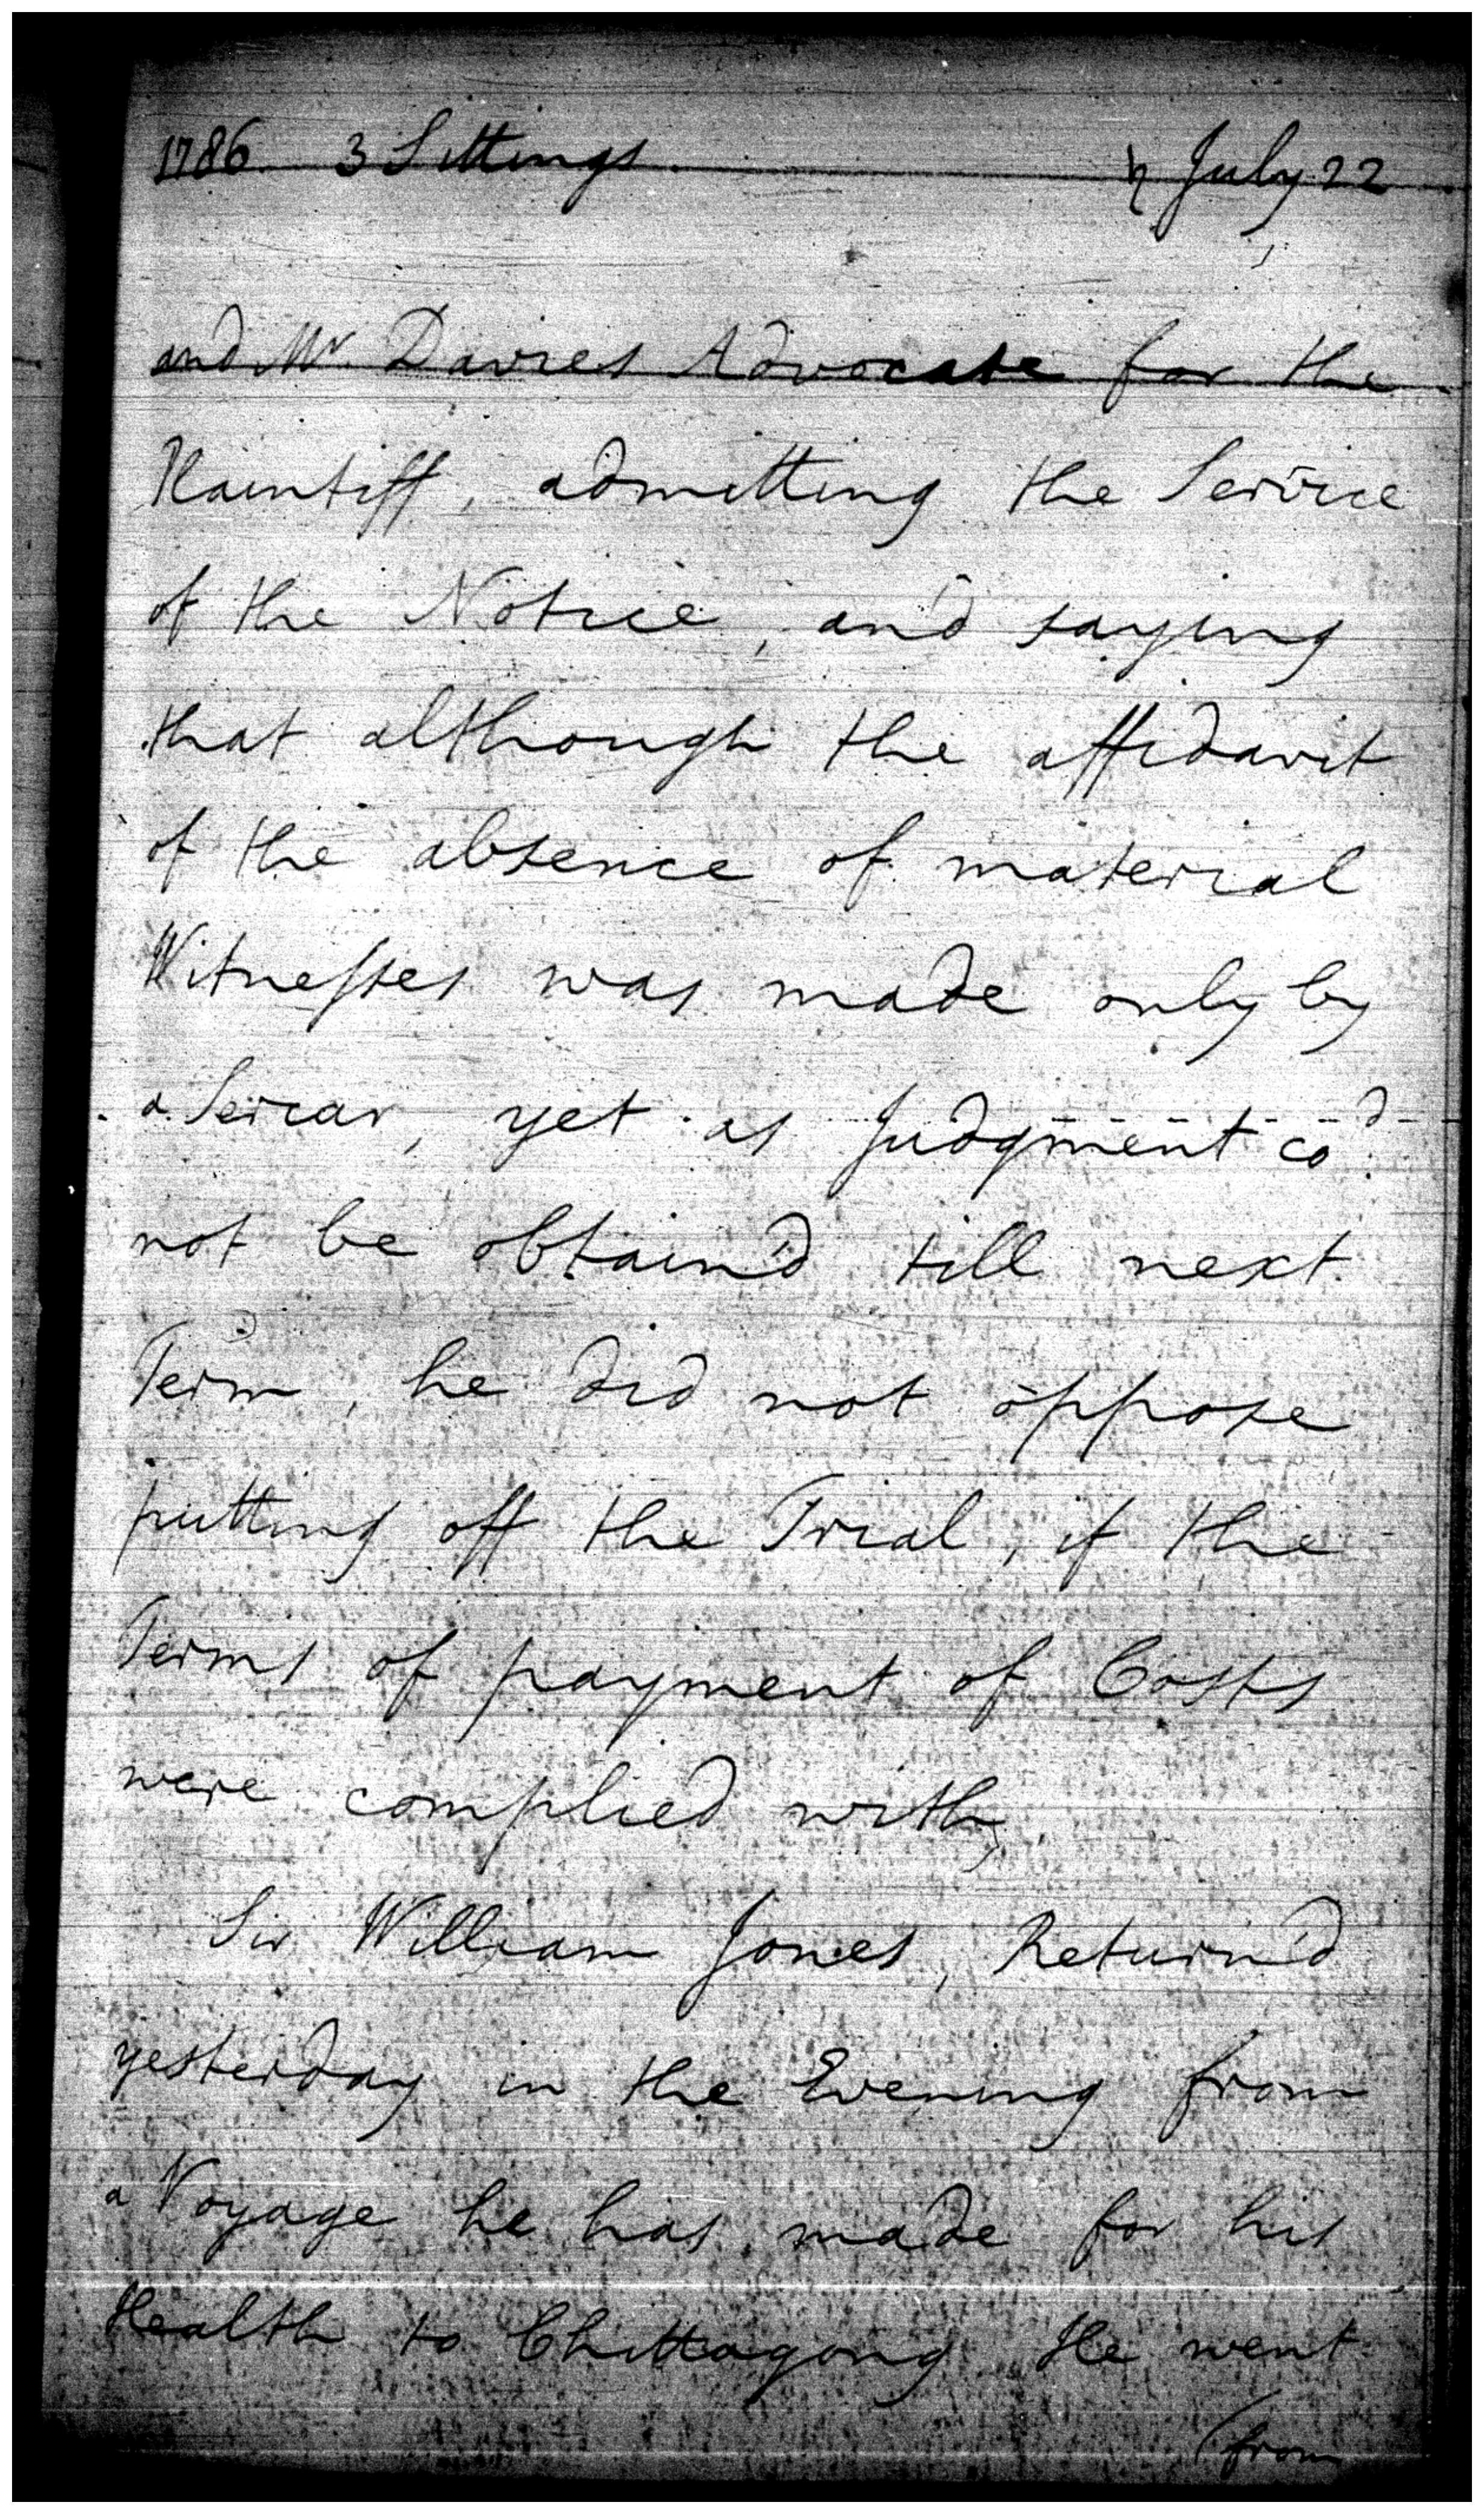 1786 3 Sittings. ♄ July 22
and Mr. Davies Advocate for the
Plaintiff, admitting the Service
of the Notice, and saying
that although the affidavit
of the absence of material
Witnesses was made only by
a Sercar, yet as Judgment co.d
not be obtain'd till next
Term, he did not oppose
putting off the Trial, if the
Terms of payment of Costs
were complied with,
Sir William Jones, Return'd
yesterday in the Evening from
a Voyage he has made for his
Health to Chittagong He went
(from